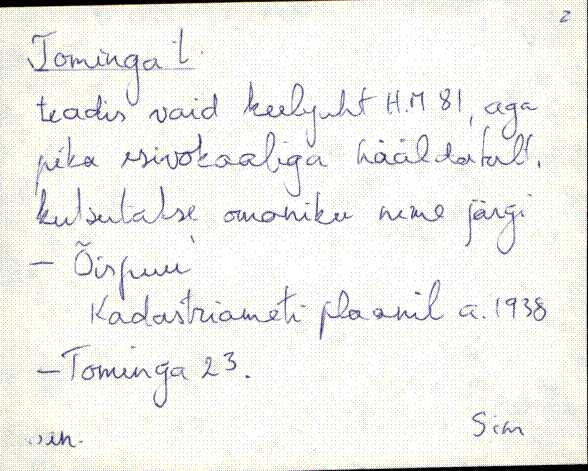 2
Tominga t.
teadis vaid keelejuht H.M 81, aga
pika esivokaaliga hääldatult.
kutsutakse omaniku nime järgi
– Õispuu
Kadastriameti plaanil a. 1938
– Tominga 23.
Sim